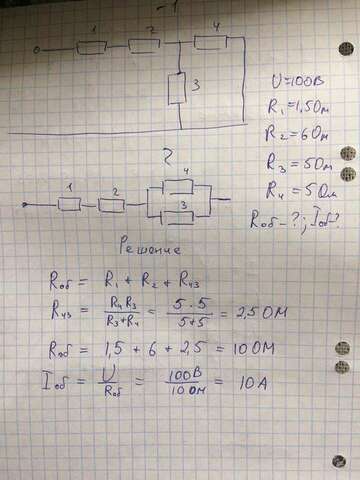 -1
1 2 4
3
U=100В
R₁=1,5Ом
R₂=6Ом
R₃=5Ом
R₄=5Ом
Rоб-?; Iоб?
2
1 2 4
3
Решение
Rоб = R₁ + R₂ + R₄₃
R₄₃ = R₄R₃/R₃+R₄ = 5·5/5+5 = 2,5ОМ
Rоб = 1,5 + 6 + 2,5 = 10ОМ
Iоб = U/Rоб = 100В/10Ом = 10А